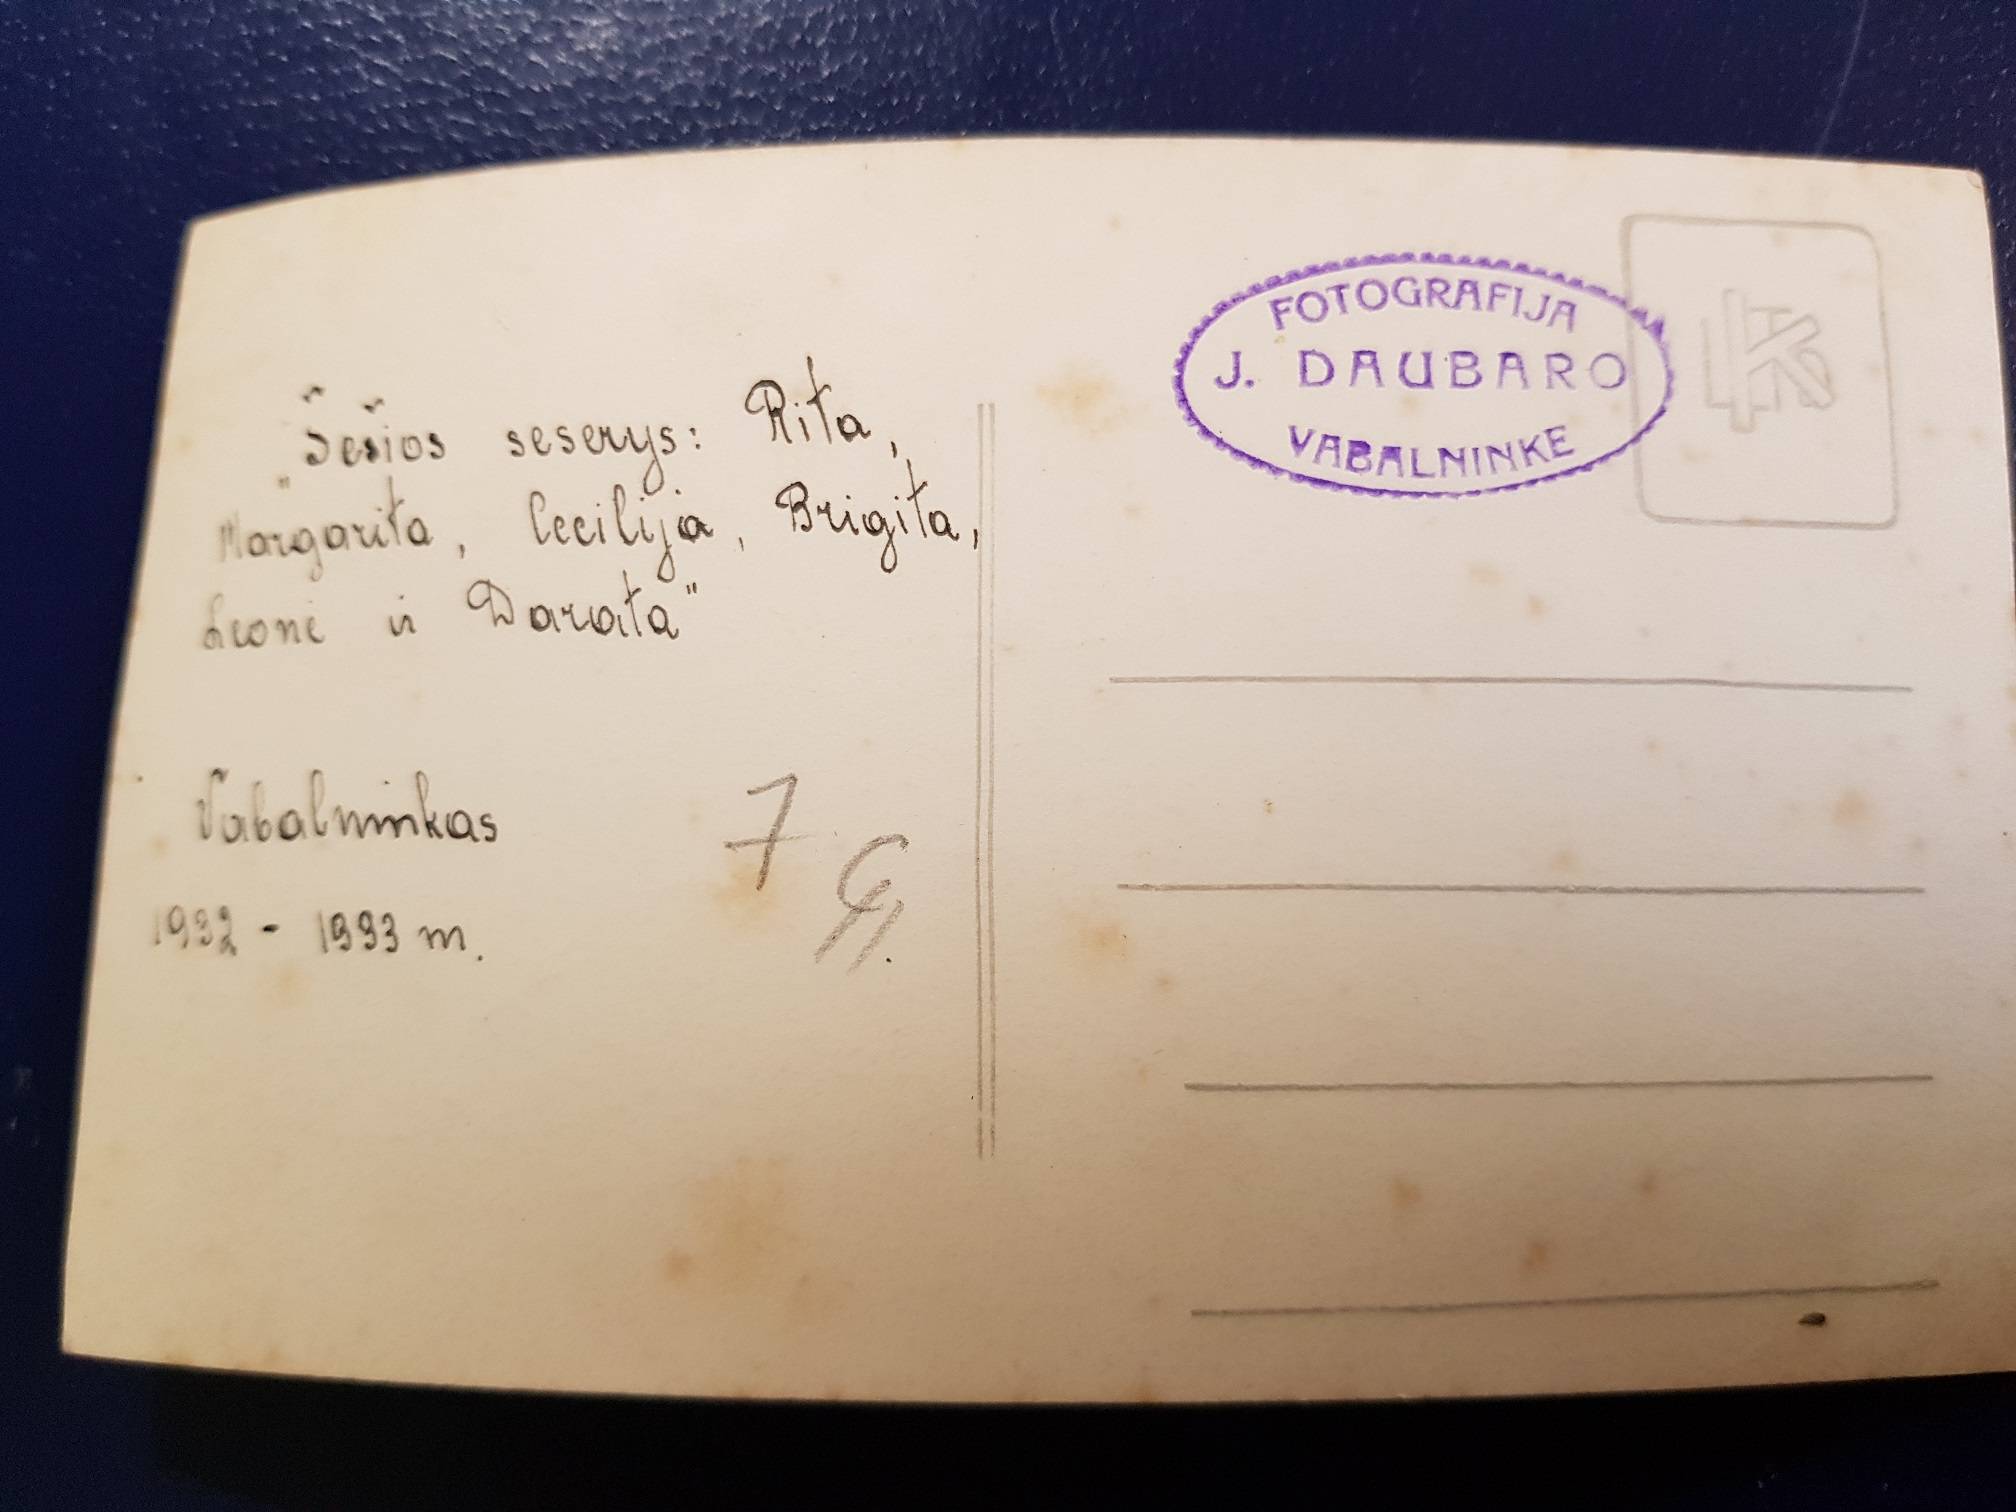 „Šešios seserys: Rita,
Margarita, Cecilija, Brigita,
Leonė ir Darata"
Vabalninkas
1932 - 1933 m.
7
FOTOGRAFIJA
J. DAUBARO
VABALNINKE